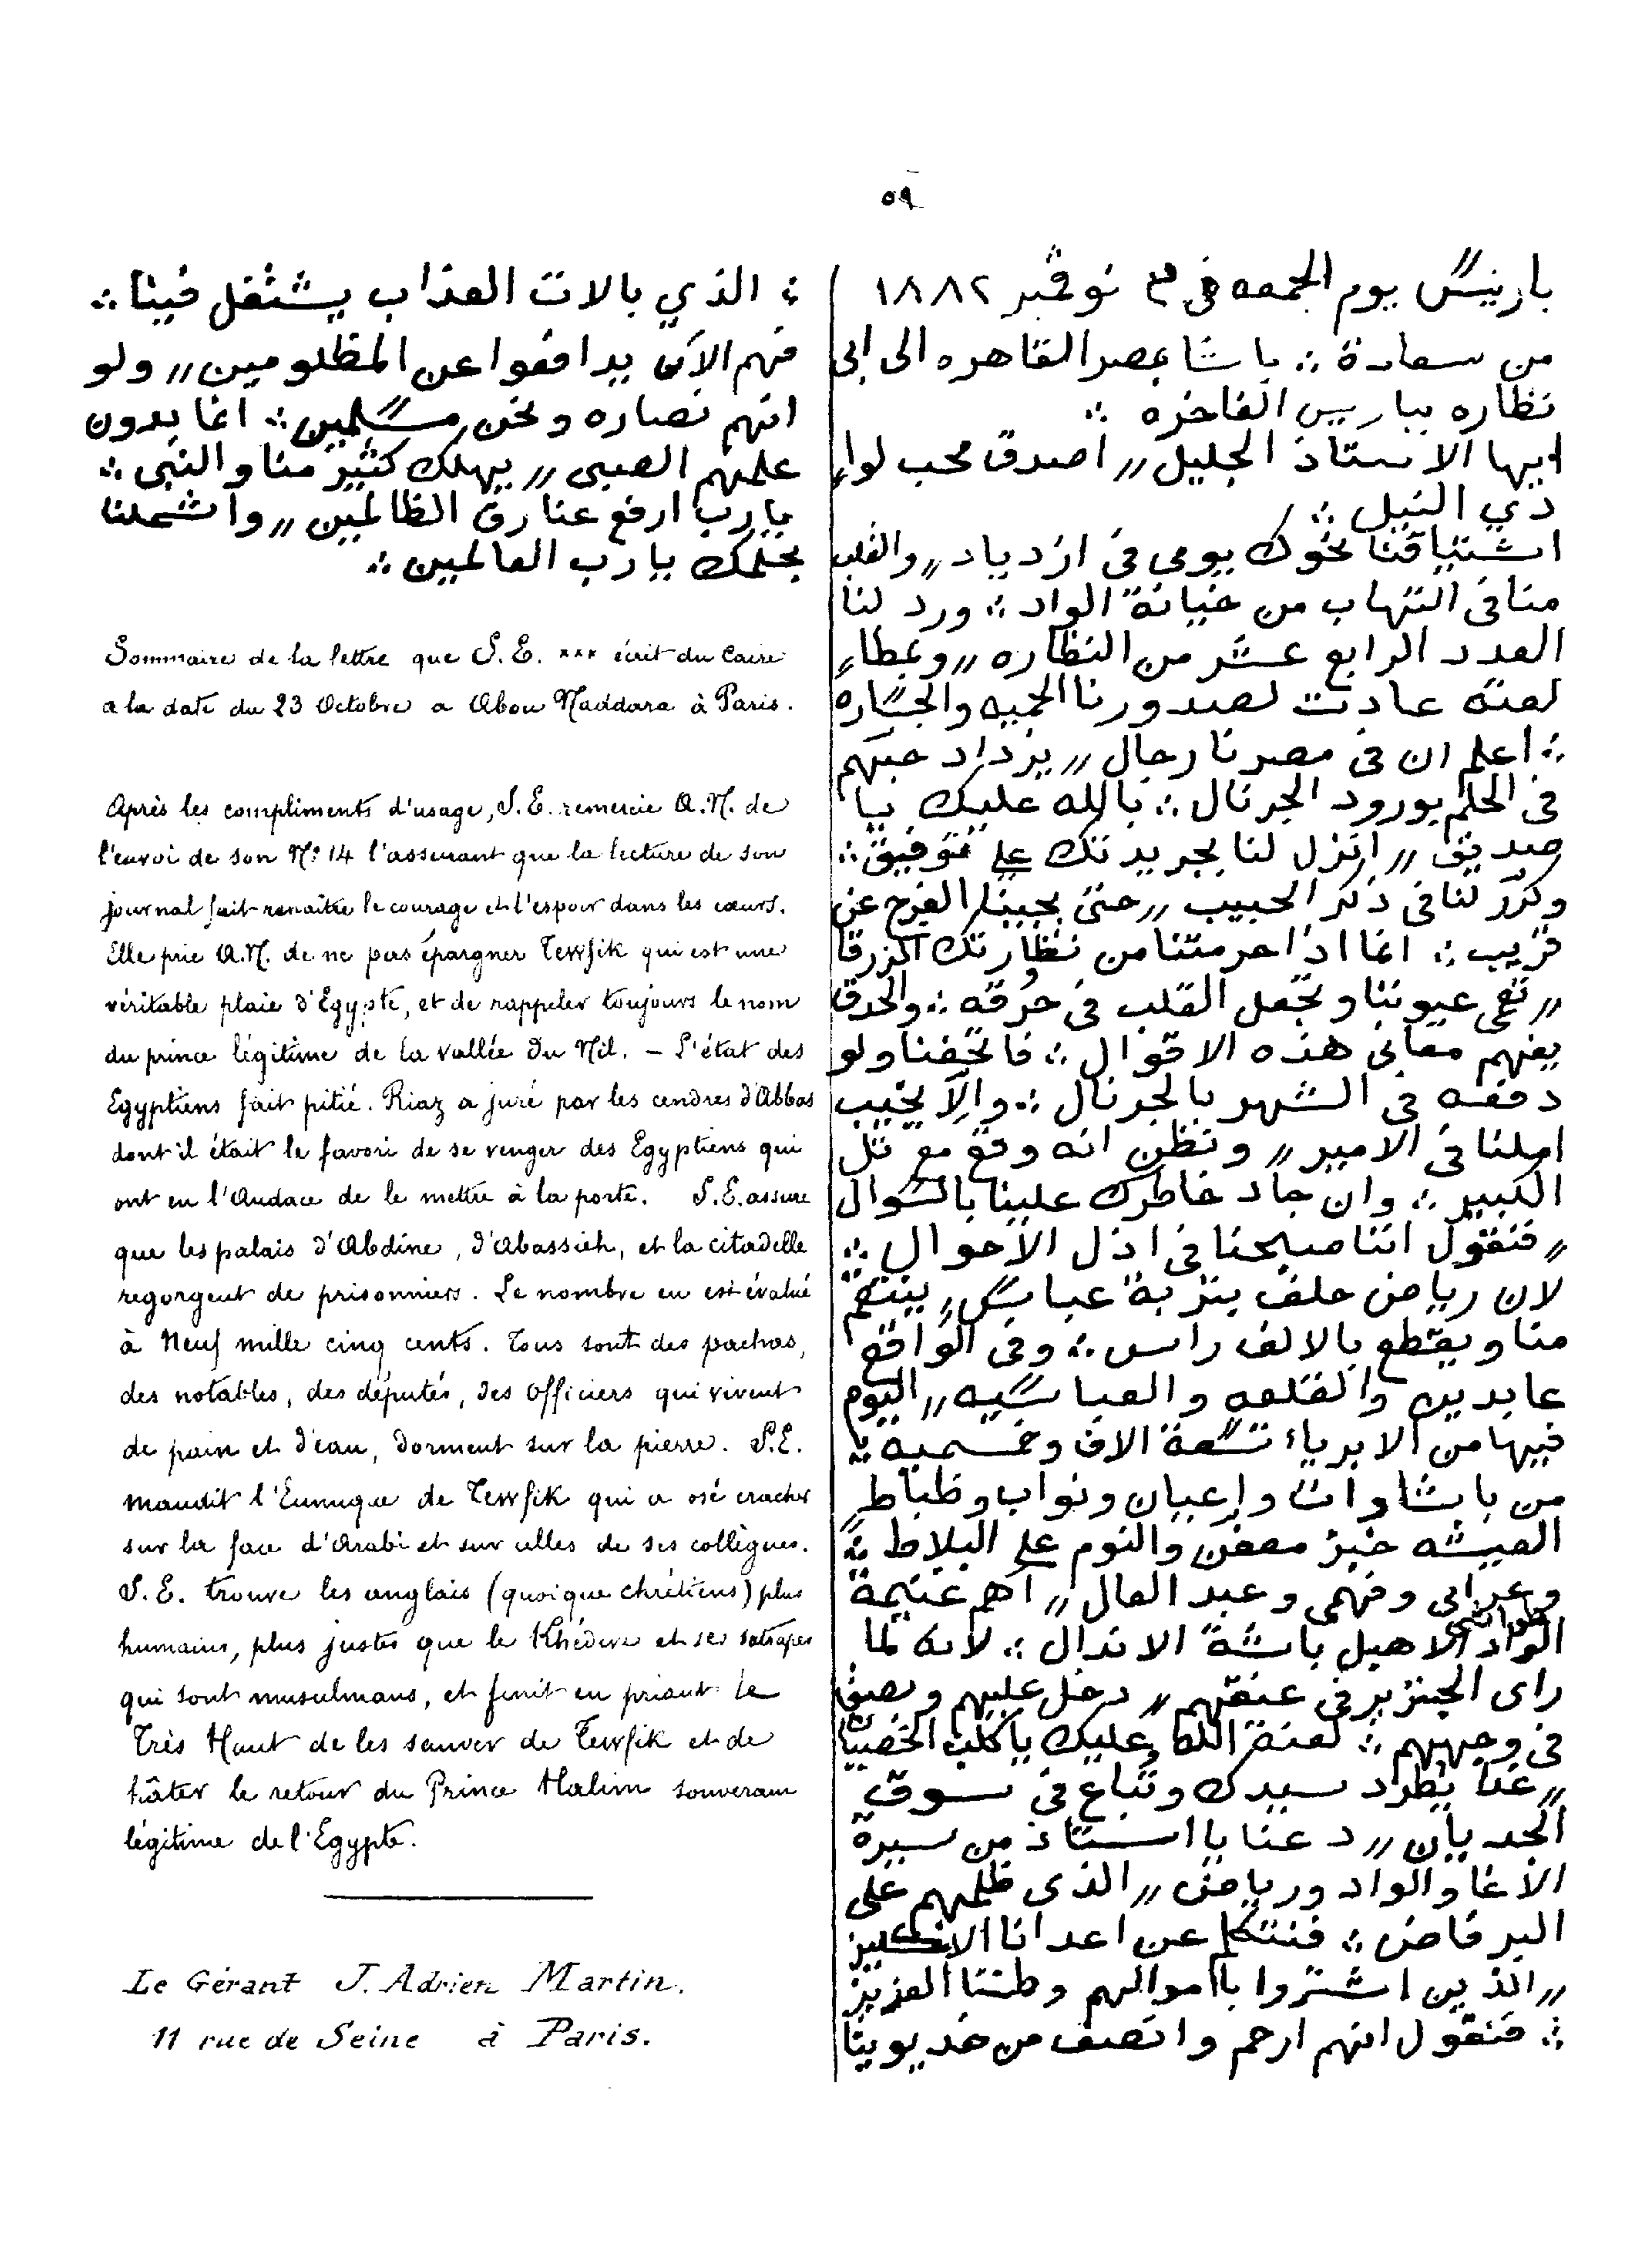 ٥٩
باريس يوم الجمعه فى ٣ نوڤمبر ١٨٨٢
من سعادة ∴ باشا بمصر القاهره الى ابى
نظاره بباريس الفاخره ∴
ايها الاستاذ الجليل ,, اصدق محب لواء
دي النيل ∴
اشتياقنا نحوك يومى فى ازدياد ,, والقلب
منا فى التهاب من خيانة الواد ∴ ورد لنا
العدد الرابع عشر من النظاره ,, وبمطا
لعته عادت لصدورنا الحميه والجساره
∴ اعلم ان فى مصرنا رجال ,, يزداد حبهم
فى الحلم بورود الجرنال ∴ بالله عليك يا
صديقى ,, انزل لنا بجريدتك على توفيق ∴
وكرّر لنا فى ذكر الحبيب ,, حتى يجينا الفرج عن
قريب ∴ انما اذا حرمتنا من نظارتك الزرقا
,, تعمى عيوننا وتجعل القلب فى حرقه ∴ والحدق
يفهم معانى هذه الاقوال ∴ فاتحفنا ولو
دفعه فى الشهر بالجرنال ∴ والّا يخيب
املنا فى الامير ,, ونظن انه وقع مع تل
الكبير ∴ وان جاد خاطرك علينا بالسوال
,, فنقول اننا صبحنا فى اذل الاحوال ∴
لان رياض حلف بتربة عباس ,, ينتقم
منا ويقطع بالالف راس ∴ وفى الواقع
عابدين والقلعه والعباسيه ,, اليوم
فيها من الابرياء تسعة الاف وخمسميه ∴
من باشاوات واعيان ونواب وظباط
العيشه خبز معفن والنوم على البلاط ∴
وعرابى وفهمى وعبد العال ,, اهم غنيمة
الواد الاهبل باشة الاندال ∴ لانه لما
راى الجنزير فى عنقهم ,, دخل عليهم وبصق
فى وجههم ∴ لعنة الله عليك ياكلب الخصيان
,, غدا يطرد سيدك وتباع فى سوق
الجديان ,, دعنا يا استاذ من سيرة
الاغا والواد ورياض ,, الذى ظلمهم على
البر فاض ∴ فنتكلم عن اعدانا الانكليز
,, الذين اشتروا باموالهم وطننا العزيز
∴ فنقول انهم ارحم وانصف من خديوينا
∴ الذي بالات العذاب يشتغل فينا ∴
فهم الآن يدافعوا عن المظلومين ,, ولو
انهم نصاره ونحن مسلمين ∴ انما بدون
علمهم الصبى ,, يهلك كثير منا والنبى ∴
يارب ارفع عنا رق الظالمين ,, واشملنا
بحلمك يارب العالمين ∴
Sommaire de la lettre que S. E. *** écrit du Caire
a la date du 23 Octobre a Abou Naddara à Paris.
Après les compliments d'usage, S. E. remercie A. N. de
l'envoi de son N° 14 l'assurant que la lecture de son
journal fait renaître le courage et l'espoir dans les cœurs.
Elle prie A. N. de ne pas épargner Tewfik qui est une
véritable plaie d'Egypte, et de rappeler toujours le nom
du prince légitime de la vallée du Nil. - L'état des
Egyptiens fait pitié. Riaz a juré par les cendres d'Abbas
dont il était le favori de se venger des Egyptiens qui
ont eu l'Audace de le mettre à la porte. S. E. assure
que les palais d'Abdine, d'Abassieh, et la citadelle
regorgent de prisonniers. Le nombre en est évalué
à Neuf mille cinq cents. Tous sont des pachas,
des notables, des députés, des officiers qui vivent
de pain et d'eau, dorment sur la pierre. S. E.
maudit l'Eunuque de Tewfik qui a osé cracher
sur la face d'Arabi et sur celles de ses collègues.
S. E. trouve les anglais (quoique chrétiens) plus
humains, plus justes que le Khédive et ses satrapes
qui sont musulmans, et finit en priant Le
Très Haut de les sauver de Tewfik et de
hâter le retour du Prince Halim souverain
légitime de l'Egypte.
Le Gérant J. Adrien Martin.
11 rue de Seine à Paris.